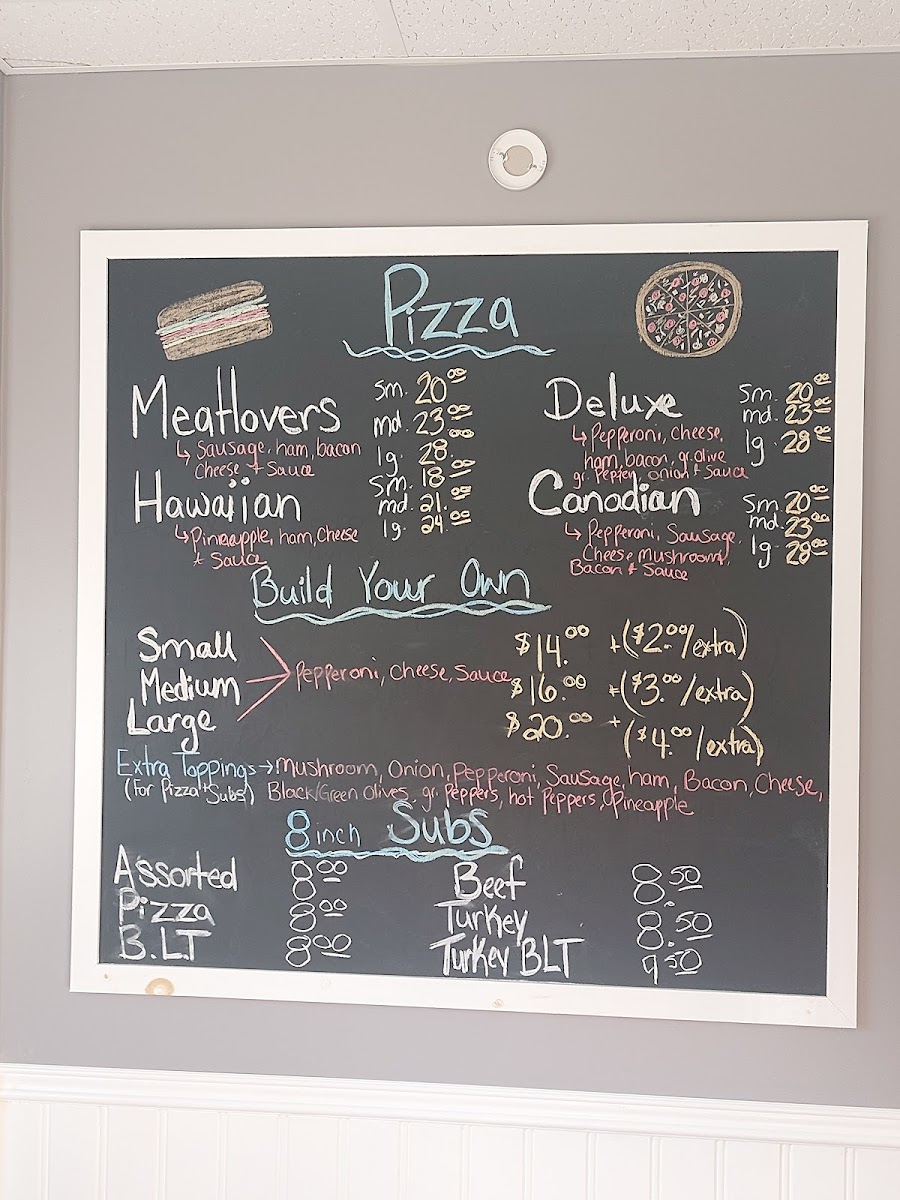 Pizza
Meatlovers
↳ Sausage, ham, bacon
cheese + sauce
sm. 20.00
md. 23.00
lg. 28.00
Hawaiian
↳ Pineapple, ham, cheese
+ sauce
sm. 18.00
md. 21.00
lg. 24.00
Deluxe
↳ Pepperoni, cheese,
ham, bacon, gr. olive
gr. pepper, onion + sauce
sm. 20.00
md. 23.00
lg 28.00
Canadian
↳ Pepperoni, Sausage,
Cheese, Mushroom,
Bacon + Sauce
sm 20.00
md. 23.00
lg 28.00
Build Your Own
Small $14.00 + ($2.00/extra)
Medium Pepperoni, Cheese, Sauce $16.00 + ($3.00/extra)
Large $20.00 + ($4.00/extra)
Extra Toppings → Mushroom, Onion, Pepperoni, Sausage, ham, Bacon, Cheese,
(For Pizza + Subs) Black/Green olives, gr. Peppers, hot Peppers, Pineapple
8 inch Subs
Assorted 8.00
Pizza 8.00
B.LT 8.00
Beef 8.50
Turkey 8.50
Turkey BLT 9.50